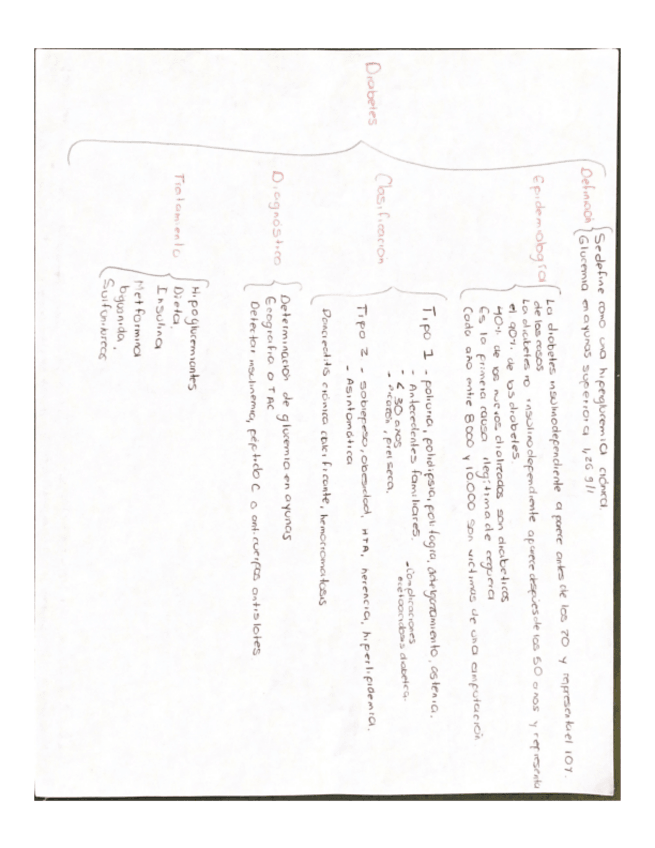 Diabetes
Definición
Se define como una hiperglucemia crónica.
Glucemia en ayunas superior a 1,26 g/l
Epidemiología
La diabetes insulinodependiente aparece antes de los 20 y representa el 10%.
de los casos
La diabetes no insulinodependiente aparece después de los 50 anos y representa
el 90%. de los diabetes.
40%. de los nuevos dializados son diabeticos
Es la primera causa legítima de ceguera
Cada año entre 8.000 y 10.000 son victimas de una amputación
Clasificacion
Tipo 1 - poliuria, polidipsia, polifagia, adelgazamiento, astenia.
- Antecedentes familiares.
- < 30 anos
- picazón, piel seca.
- Complicaciones
cetoacidosis diabetica.
Tipo 2 - sobrepeso, obesidad, HTA, herencia, hiperlipidemia.
- Asintomática
Pancreatitis crónica calcificante, hemocromatosis
Diagnóstico
Determinación de glucemia en ayunas
Ecografia o TAC
Detectar insulinemia, péptido C o anticuerpos antiislotes
Tratamiento
Hipoglucemiantes
Dieta.
Insulina
Metformina
biguanida.
Sulfonilureas